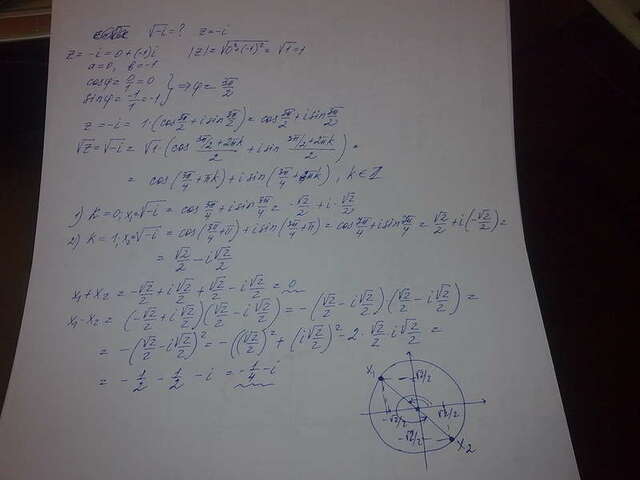 √-i = ? z = -i
z = -i = 0 + (-1)i |z| = √(0² + (-1)²) = √1 = 1
a = 0, b = -1
cosφ = 0/1 = 0
sinφ = -1/1 = -1 } ⇒ φ = 3π/2
z = -i = 1·(cos 3π/2 + i sin 3π/2) = cos 3π/2 + i sin 3π/2
√z = √-i = √1·(cos (3π/2 + 2πk)/2 + i sin (3π/2 + 2πk)/2) =
= cos(3π/4 + πk) + i sin(3π/4 + πk), k ∈ Z
1) k = 0, x₁ = √-i = cos 3π/4 + i sin 3π/4 = -√2/2 + i·√2/2
2) k = 1, x₂ = √-i = cos(3π/4 + π) + i sin(3π/4 + π) = cos 7π/4 + i sin 7π/4 = √2/2 + i(-√2/2) =
= √2/2 - i√2/2
x₁ + x₂ = -√2/2 + i√2/2 + √2/2 - i√2/2 = 0
x₁·x₂ = (-√2/2 + i√2/2)(√2/2 - i√2/2) = -(√2/2 - i√2/2)(√2/2 - i√2/2) =
= -(√2/2 - i√2/2)² = -((√2/2)² + (i√2/2)² - 2·√2/2·i√2/2 =
= -1/2 - 1/2 - i = -1/4 - i
x₁
√2/2
-√2/2
√2/2
-√2/2
x₂